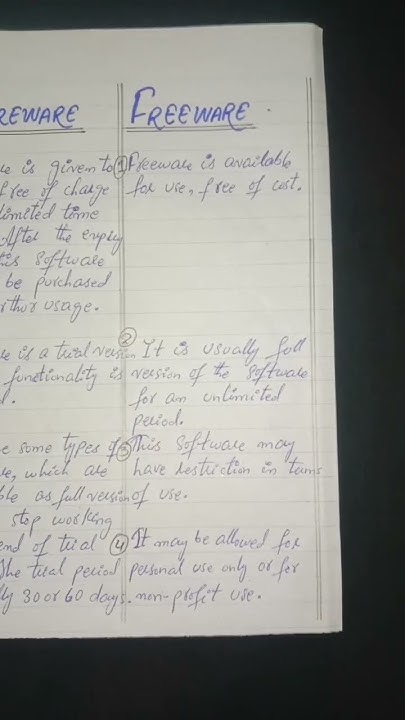 REWARE
re is given to
free of charge
limited time
After the expiry
his software
be purchased
rther usage.
re is a trial version
functionality is
d.
e some types of
re, which are
ble as full version
stop working
end of trial
The trial period
lly 30 or 60 days.
FREEWARE
① Freeware is available
for use, free of cost.
② It is usually full
version of the software
for an unlimited
period.
③ This software may
have restriction in terms
of use.
④ It may be allowed for
personal use only or for
non-profit use.